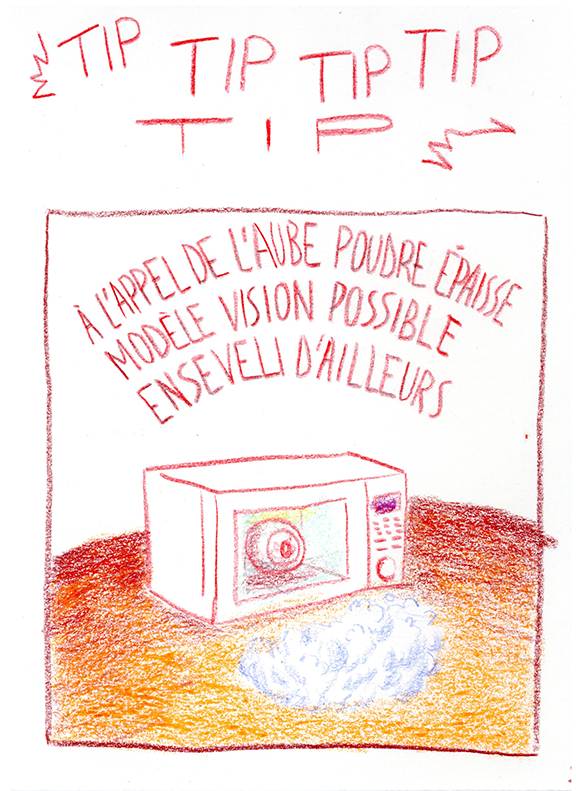 TIP TIP TIP TIP
TIP
À L'APPEL DE L'AUBE POUDRE ÉPAISSE
MODÈLE VISION POSSIBLE
ENSEVELI D'AILLEURS